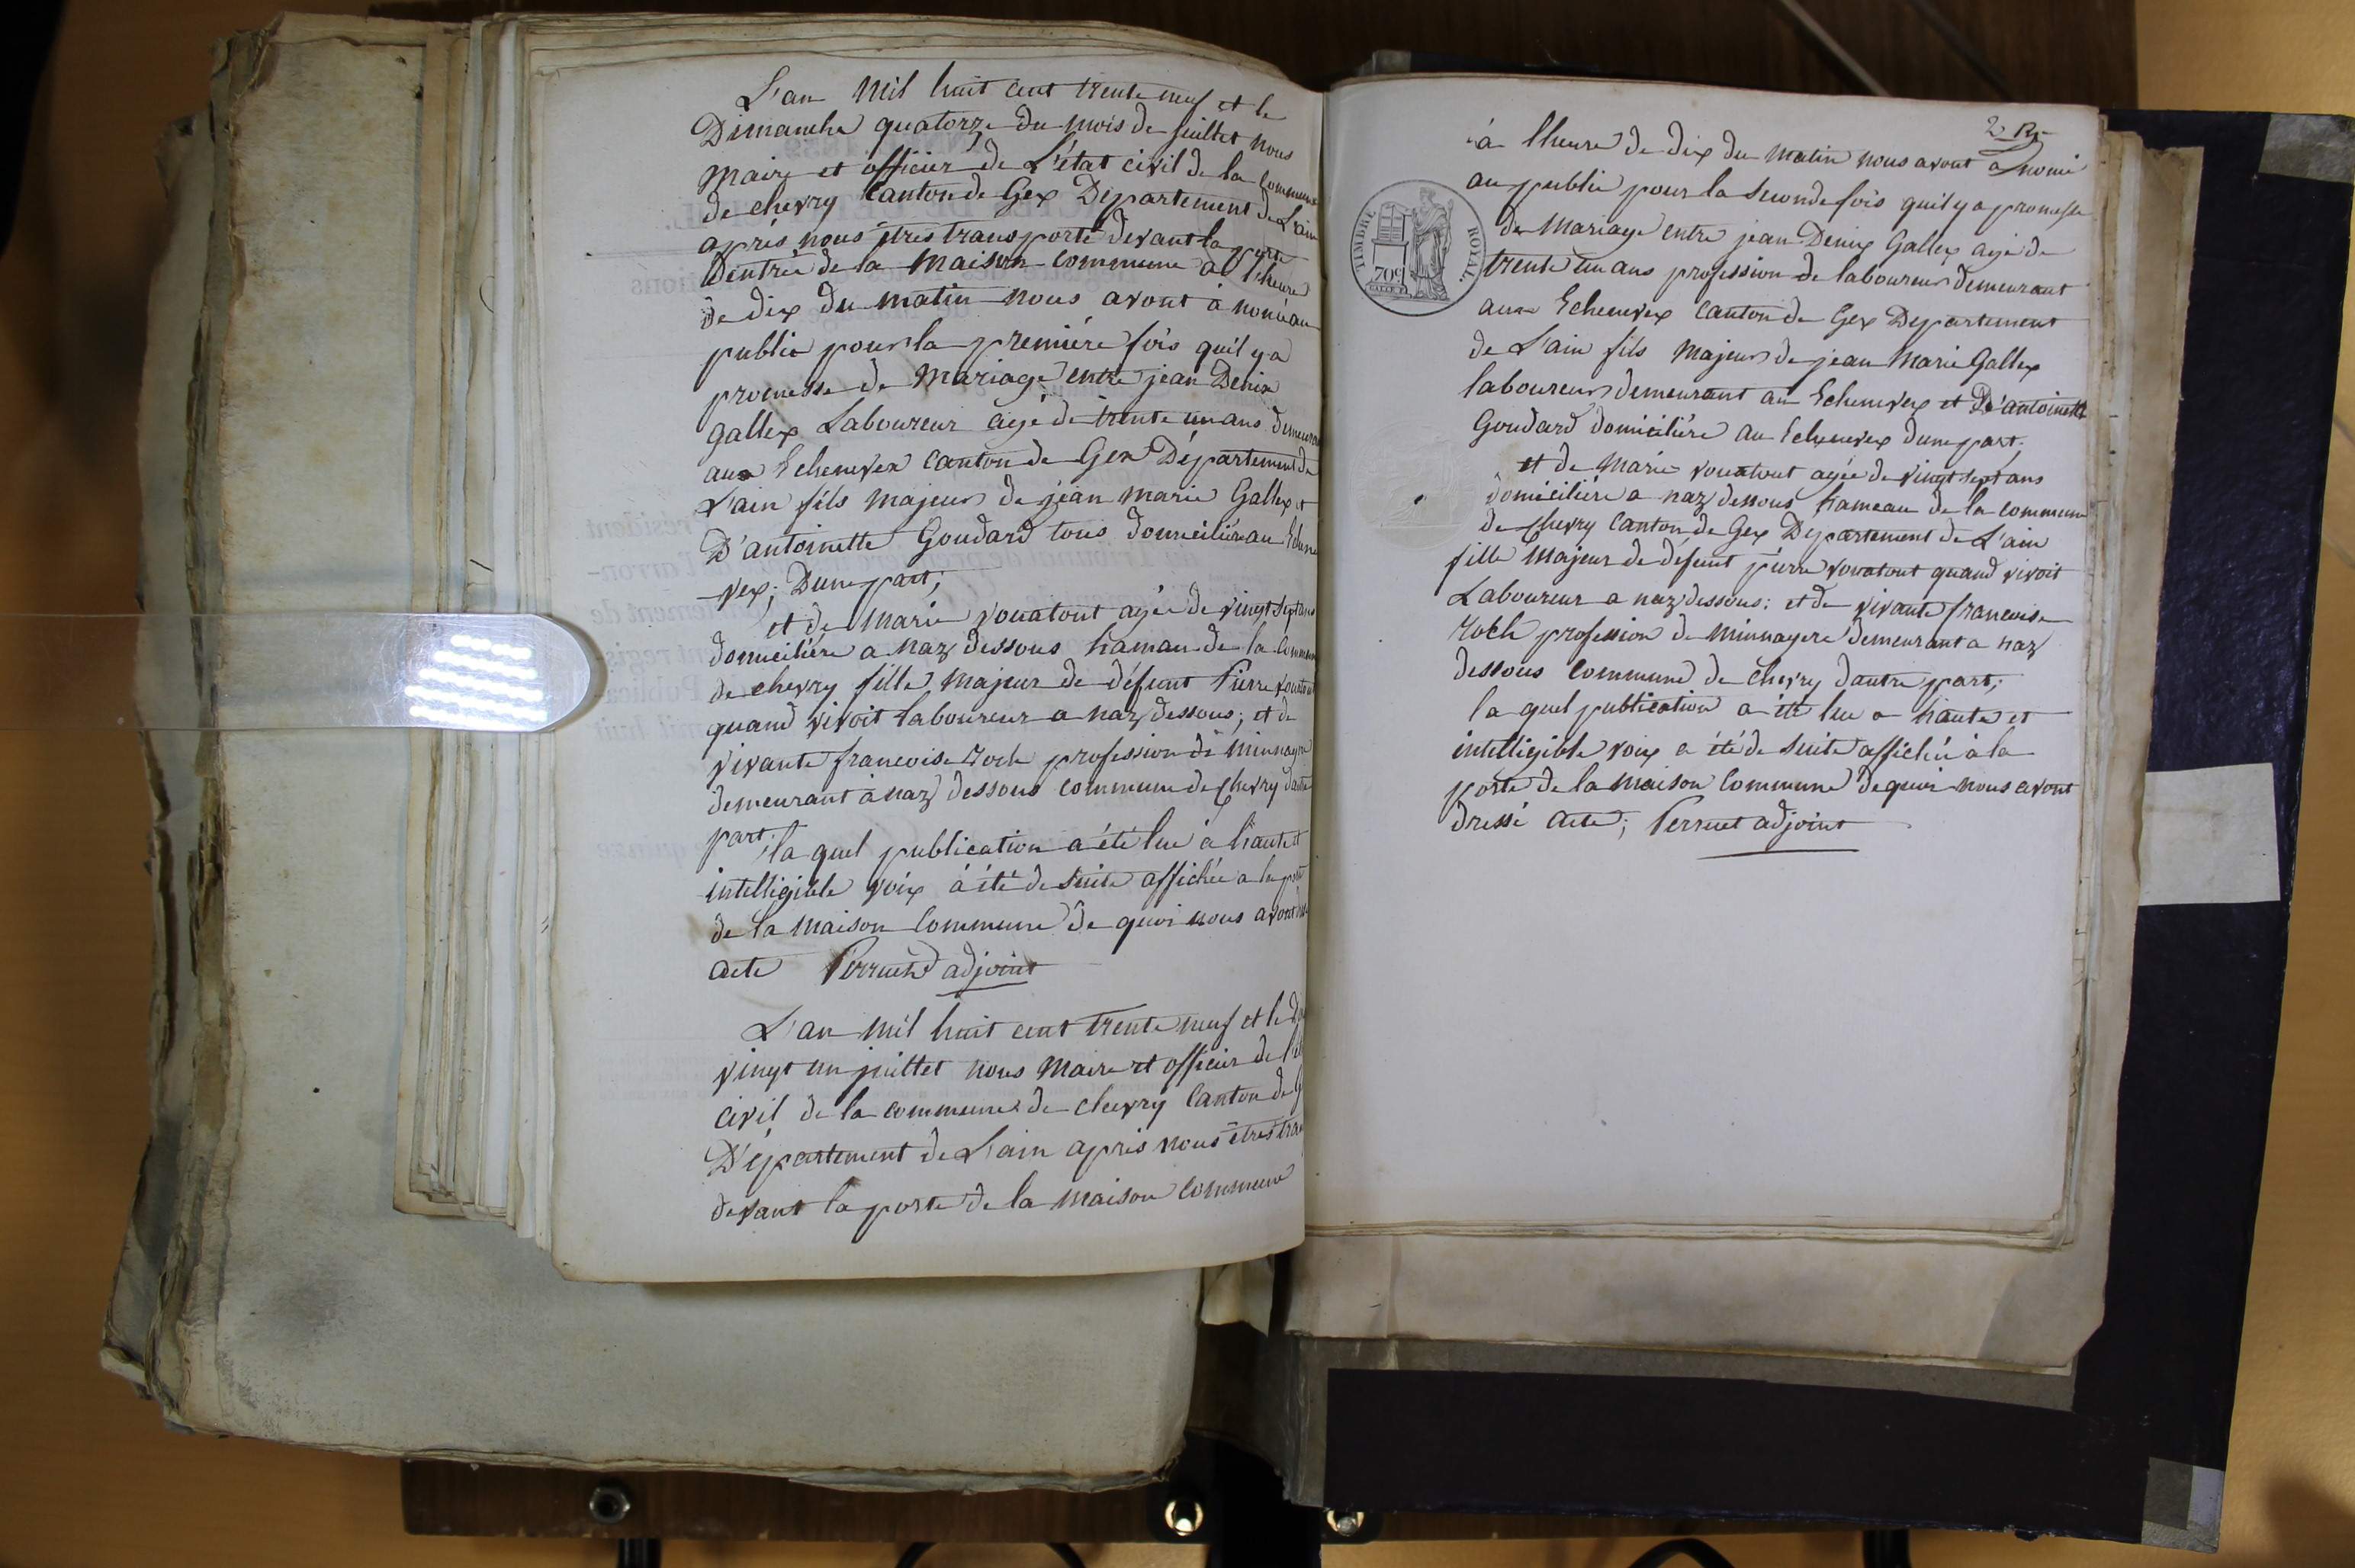 L'an Mil huit cent trente neuf et le
Dimanche quatorze du mois de juillet nous
Maire et officier de L'état civil de la commune
de chevry Canton de Gex Département de L'ain
après nous êtres transporté devant la porte
Dentrée de la Maison commune a l'heure
de dix du matin nous avont à noncé au
public pour la première fois quil y a
promesse de Mariage entre jean Denix
Gallex Laboureur agé de trente un ans
aux Echenevex Canton de Gex Département de
L'ain fils majeur de jean marie Gallex et
D'antoinette Goudard tous domiciliére au
vex; Dune part;
et de Marie vouatout agée de vingt sept ans
domiciliére a naz dessous hamau de la
de chevry fille Majeur de défeunt Pierre
quand vivoit laboureur a naz dessous; et de
vivante francoise Roch profession de Minnagere
demeurant à naz dessous commune de chevry dautre
part; la quel publication a été lue à haute et
intelligible voix à été de suite affichée a la porte
de la Maison Commune de quoi nous avont
acte Perruet adjoint
L'an mil huit cent trente neuf et le
vingt un juillet nous Maire et officier de
civil de la commune de chevry Canton de
Département de L'ain après nous êtres
devant la porte de la Maison Commune
2
à lheure de dix du matin nous avont à nonné
au public pour la seconde fois quil y a promesse
de Mariage entre jean Denix Gallex agé de
trente un ans profession de laboureur demeurant
aux Echenevex Canton de Gex Département
de L'ain fils Majeur de jean Marie Gallex
laboureur demeurant au Echenevex et D'antoinette
Goudard domiciliére au Echenevex dune part;
et de Marie vouatout agée de vingt sept ans
domiciliére a naz dessous hameau de la commune
de Chevry Canton de Gex Département de L'ain
fille Majeur de défeunt pierre vouatout quand vivoit
Laboureur a naz dessous; et de vivante francoise
roch profession de minnagere demeurant a naz
dessous Commune de Chevry dautre part;
la quel publication a été lue a haute et
intelligible voix a été de suite affichée à la
porte de la Maison Commune de quoi nous avont
dressé acte; Perruet adjoint
TIMBRE ROYAL
70c